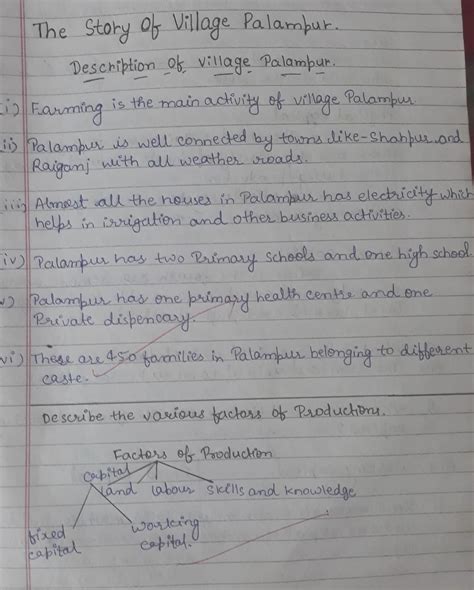 The Story Of Village Palampur.
Description of village Palampur.
i) Farming is the main activity of village Palampur
ii) Palampur is well connected by towns like-Shahpur and
Raiganj with all weather roads.
iii) Almost all the houses in Palampur has electricity which
helps in irrigation and other business activities.
iv) Palampur has two Primary schools and one high school.
v) Palampur has one primary health centre and one
Private dispencary.
vi) These are 450 families in Palampur belonging to different
caste.
Describe the various factors of Productions.
Factors of Production
capital land labour skills and knowledge
fixed capital
working capital.